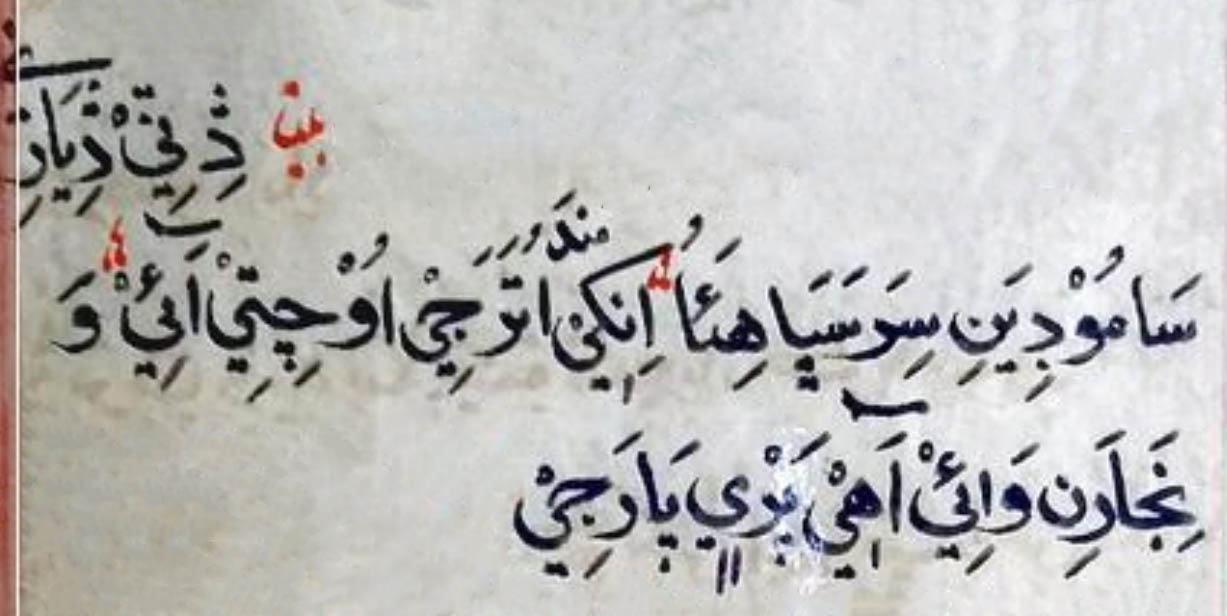 ذِتِيْ ذِيَارِ
سَامُوْدِيَنِ سِرَسَيَاهِئَاُ اتَرَجِيْ اُوْچِتِيْ اَئِيْ وَ
نِجَارَنِ وَائِيْ اَهِيْ پَارَجِيْ